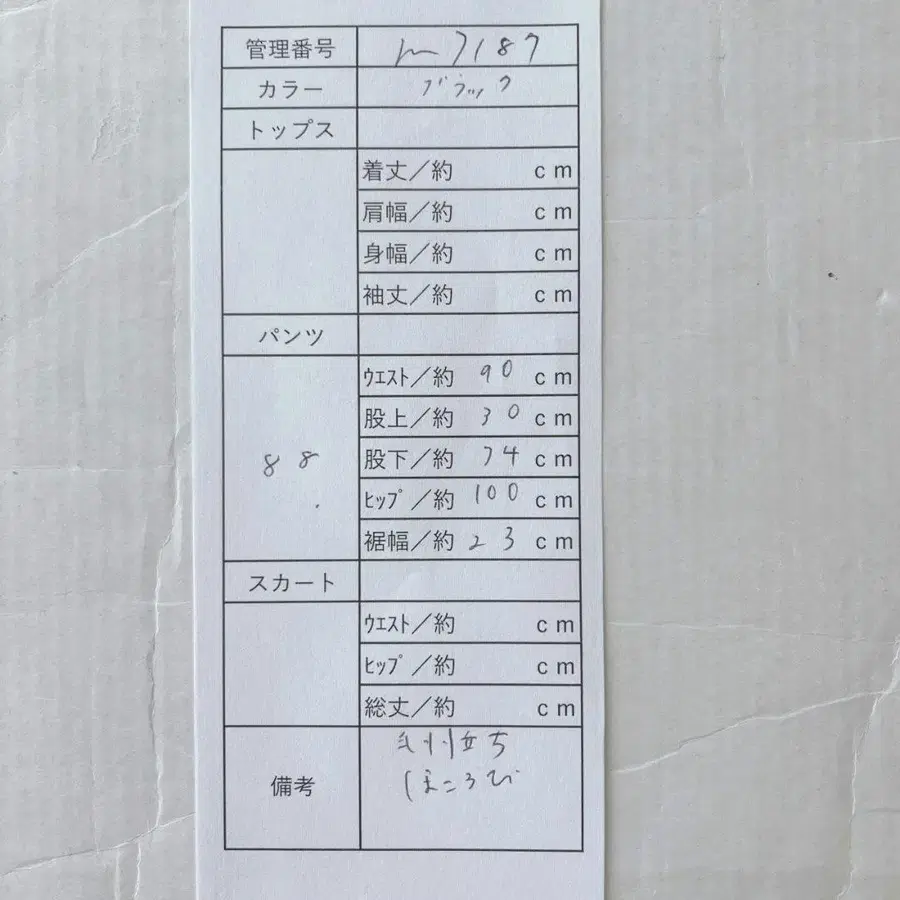 管理番号 m7187
カラー ブラック
トップス
着丈／約 cm
肩幅／約 cm
身幅／約 cm
袖丈／約 cm
パンツ
ｳｴｽﾄ／約 90 cm
股上／約 30 cm
88 股下／約 74 cm
ﾋｯﾌﾟ／約 100 cm
裾幅／約 23 cm
スカート
ｳｴｽﾄ／約 cm
ﾋｯﾌﾟ／約 cm
総丈／約 cm
立ち
備考 ほころび